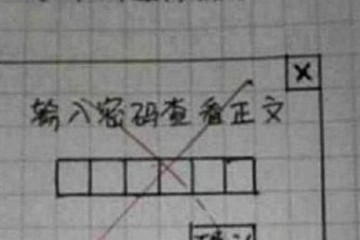 X
输入密码查看正文
确认